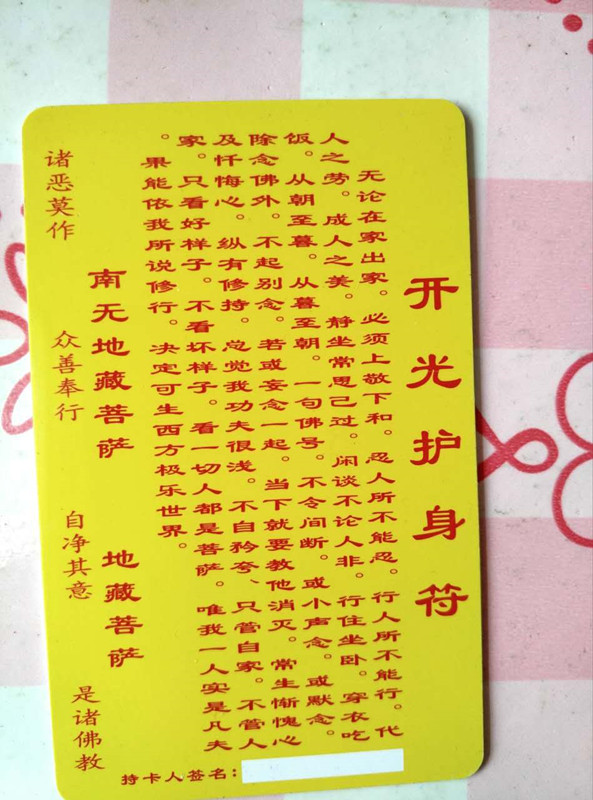 开光护身符
无论在家出家。必须上敬下和。忍人所不能忍。行人所不能行。代
人之劳。成人之美。静坐常思己过。闲谈不论人非。行住坐卧。穿衣吃
饭。从朝至暮。从暮至朝。一句佛号。不令间断。或小声念。或默念。
除念佛外。不起别念。若或妄念一起。当下就要教他消灭。常生惭愧心
及忏悔心。纵有修持。总觉我功夫很浅。不自矜夸、只管自家。不管人
家。只看好样子。不看坏样子。看一切人都是菩萨。唯我一人实是凡夫
。果能依我所说修行。决定可生西方极乐世界。
南无地藏菩萨 地藏菩萨
诸恶莫作 众善奉行 自净其意 是诸佛教
持卡人签名：